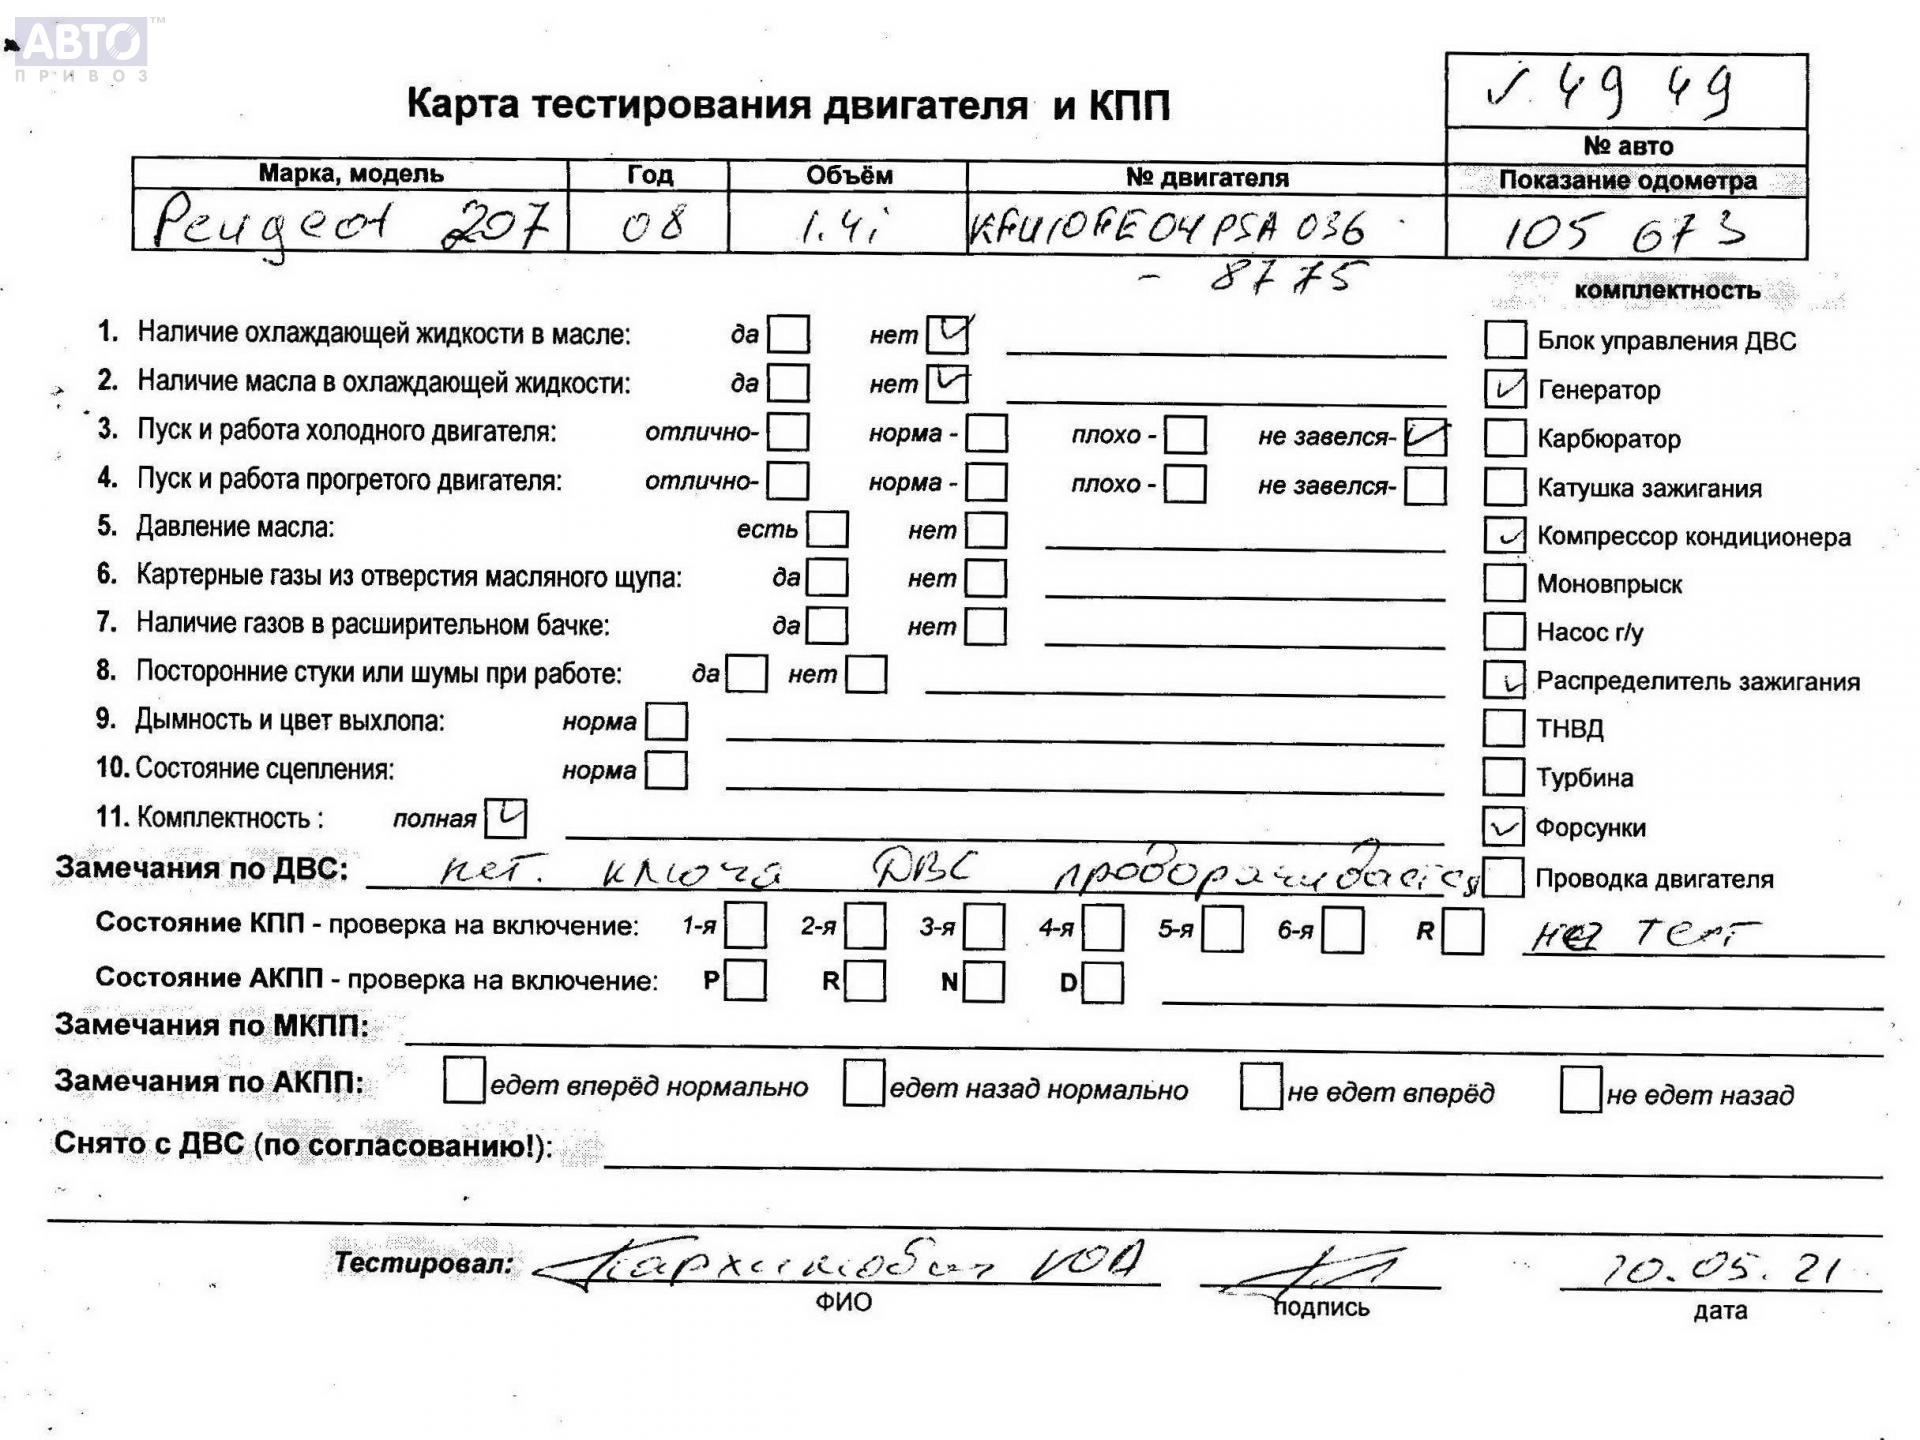 АВТО™
ПРИВОЗ
√ 4949
Карта тестирования двигателя и КПП
№ авто
Марка, модель Год Объём № двигателя Показание одометра
Peugeot 207 08 1.4i KFU10FE04PSA036 105 673
- 8775
комплектность
1. Наличие охлаждающей жидкости в масле: да нет ✓ Блок управления ДВС
2. Наличие масла в охлаждающей жидкости: да нет ✓ ✓ Генератор
3. Пуск и работа холодного двигателя: отлично- норма - плохо - не завелся- ✓ Карбюратор
4. Пуск и работа прогретого двигателя: отлично- норма - плохо - не завелся- Катушка зажигания
5. Давление масла: есть нет ✓ Компрессор кондиционера
6. Картерные газы из отверстия масляного щупа: да нет Моновпрыск
7. Наличие газов в расширительном бачке: да нет Насос г/у
8. Посторонние стуки или шумы при работе: да нет ✓ Распределитель зажигания
9. Дымность и цвет выхлопа: норма ТНВД
10. Состояние сцепления: норма Турбина
11. Комплектность : полная ✓ ✓ Форсунки
Замечания по ДВС: нет. ключа ДВС проворачивается Проводка двигателя
Состояние КПП - проверка на включение: 1-я 2-я 3-я 4-я 5-я 6-я R на тест
Состояние АКПП - проверка на включение: P R N D
Замечания по МКПП:
Замечания по АКПП: едет вперёд нормально едет назад нормально не едет вперёд не едет назад
Снято с ДВС (по согласованию!):
Тестировал: ЮА 20.05.21
ФИО подпись дата